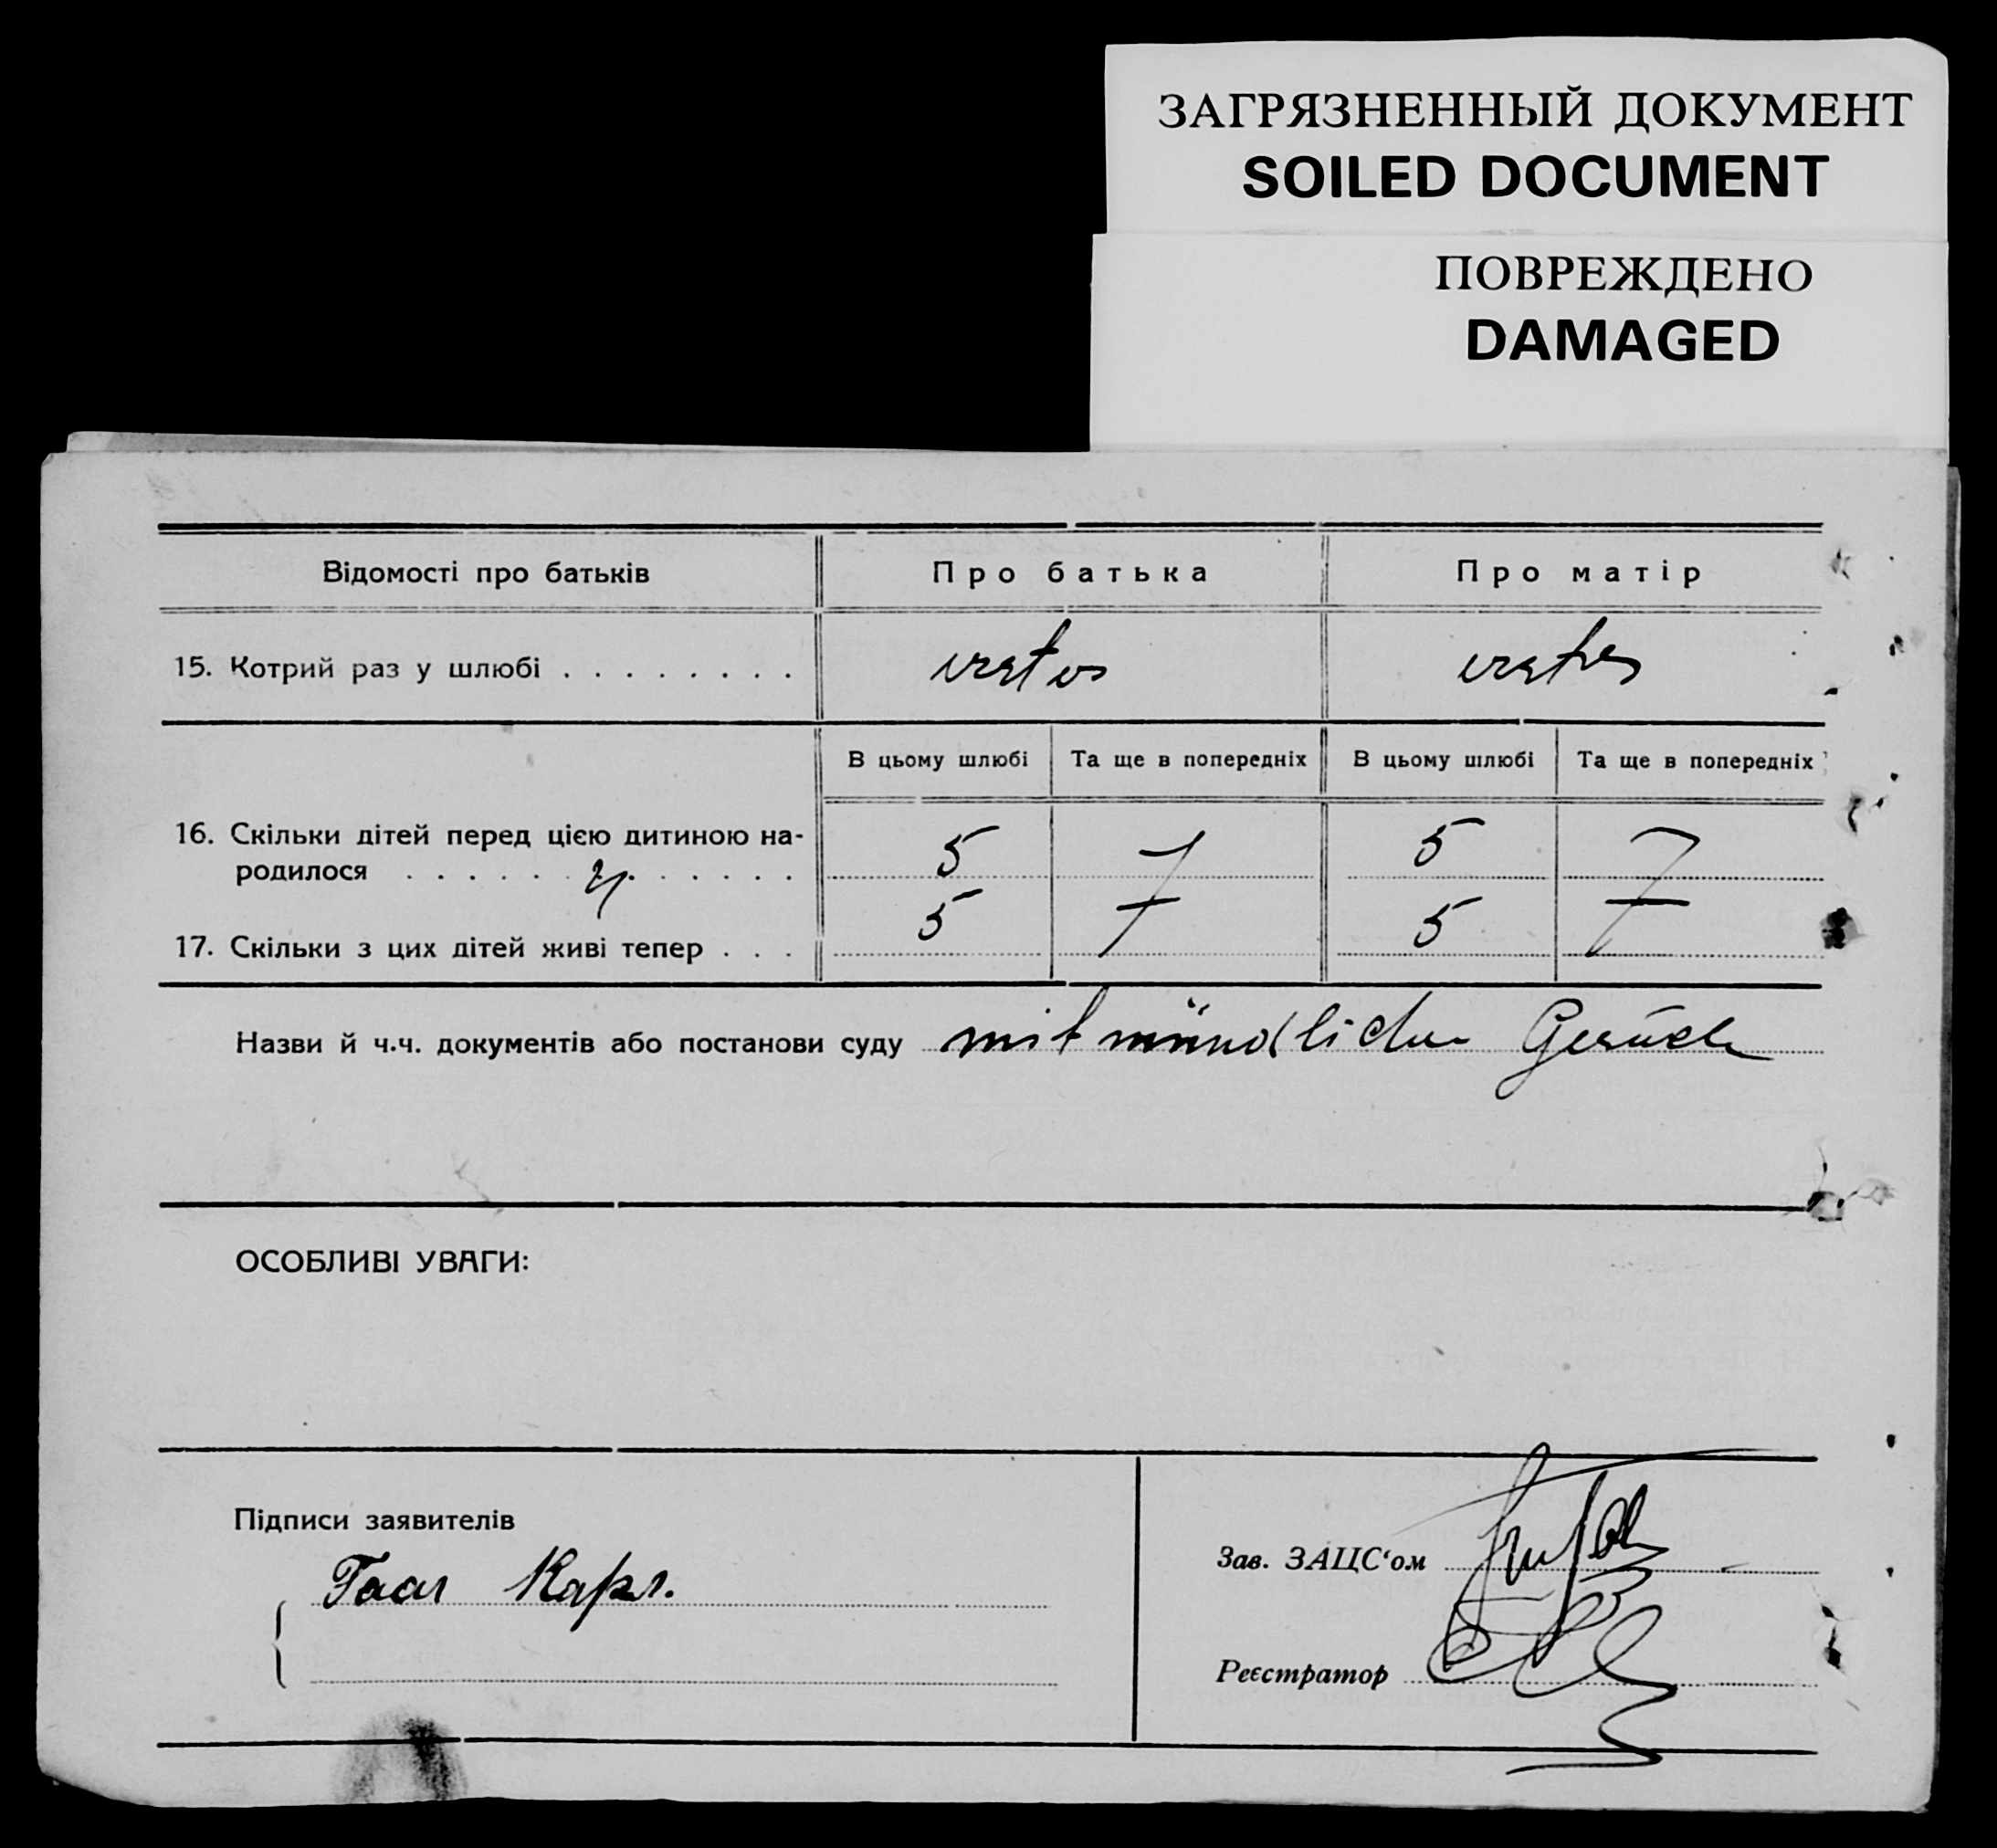 ЗАГРЯЗНЕННЫЙ ДОКУМЕНТ
SOILED DOCUMENT
ПОВРЕЖДЕНО
DAMAGED
Відомості про батьків Про батька Про матір
15. Котрий раз у шлюбі . . . . . . . .
В цьому шлюбі Та ще в попередніх В цьому шлюбі Та ще в попередніх
16. Скільки дітей перед цією дитиною на-
родилося . . . . . . . . . . . . 5 5
17. Скільки з цих дітей живі тепер . . . 5 5
Назви й ч.ч. документів або постанови суду mit mündlichen
ОСОБЛИВІ УВАГИ:
Підписи заявителів
Гаас Карл.
Зав. ЗАЦС‘ом
Реєстратор